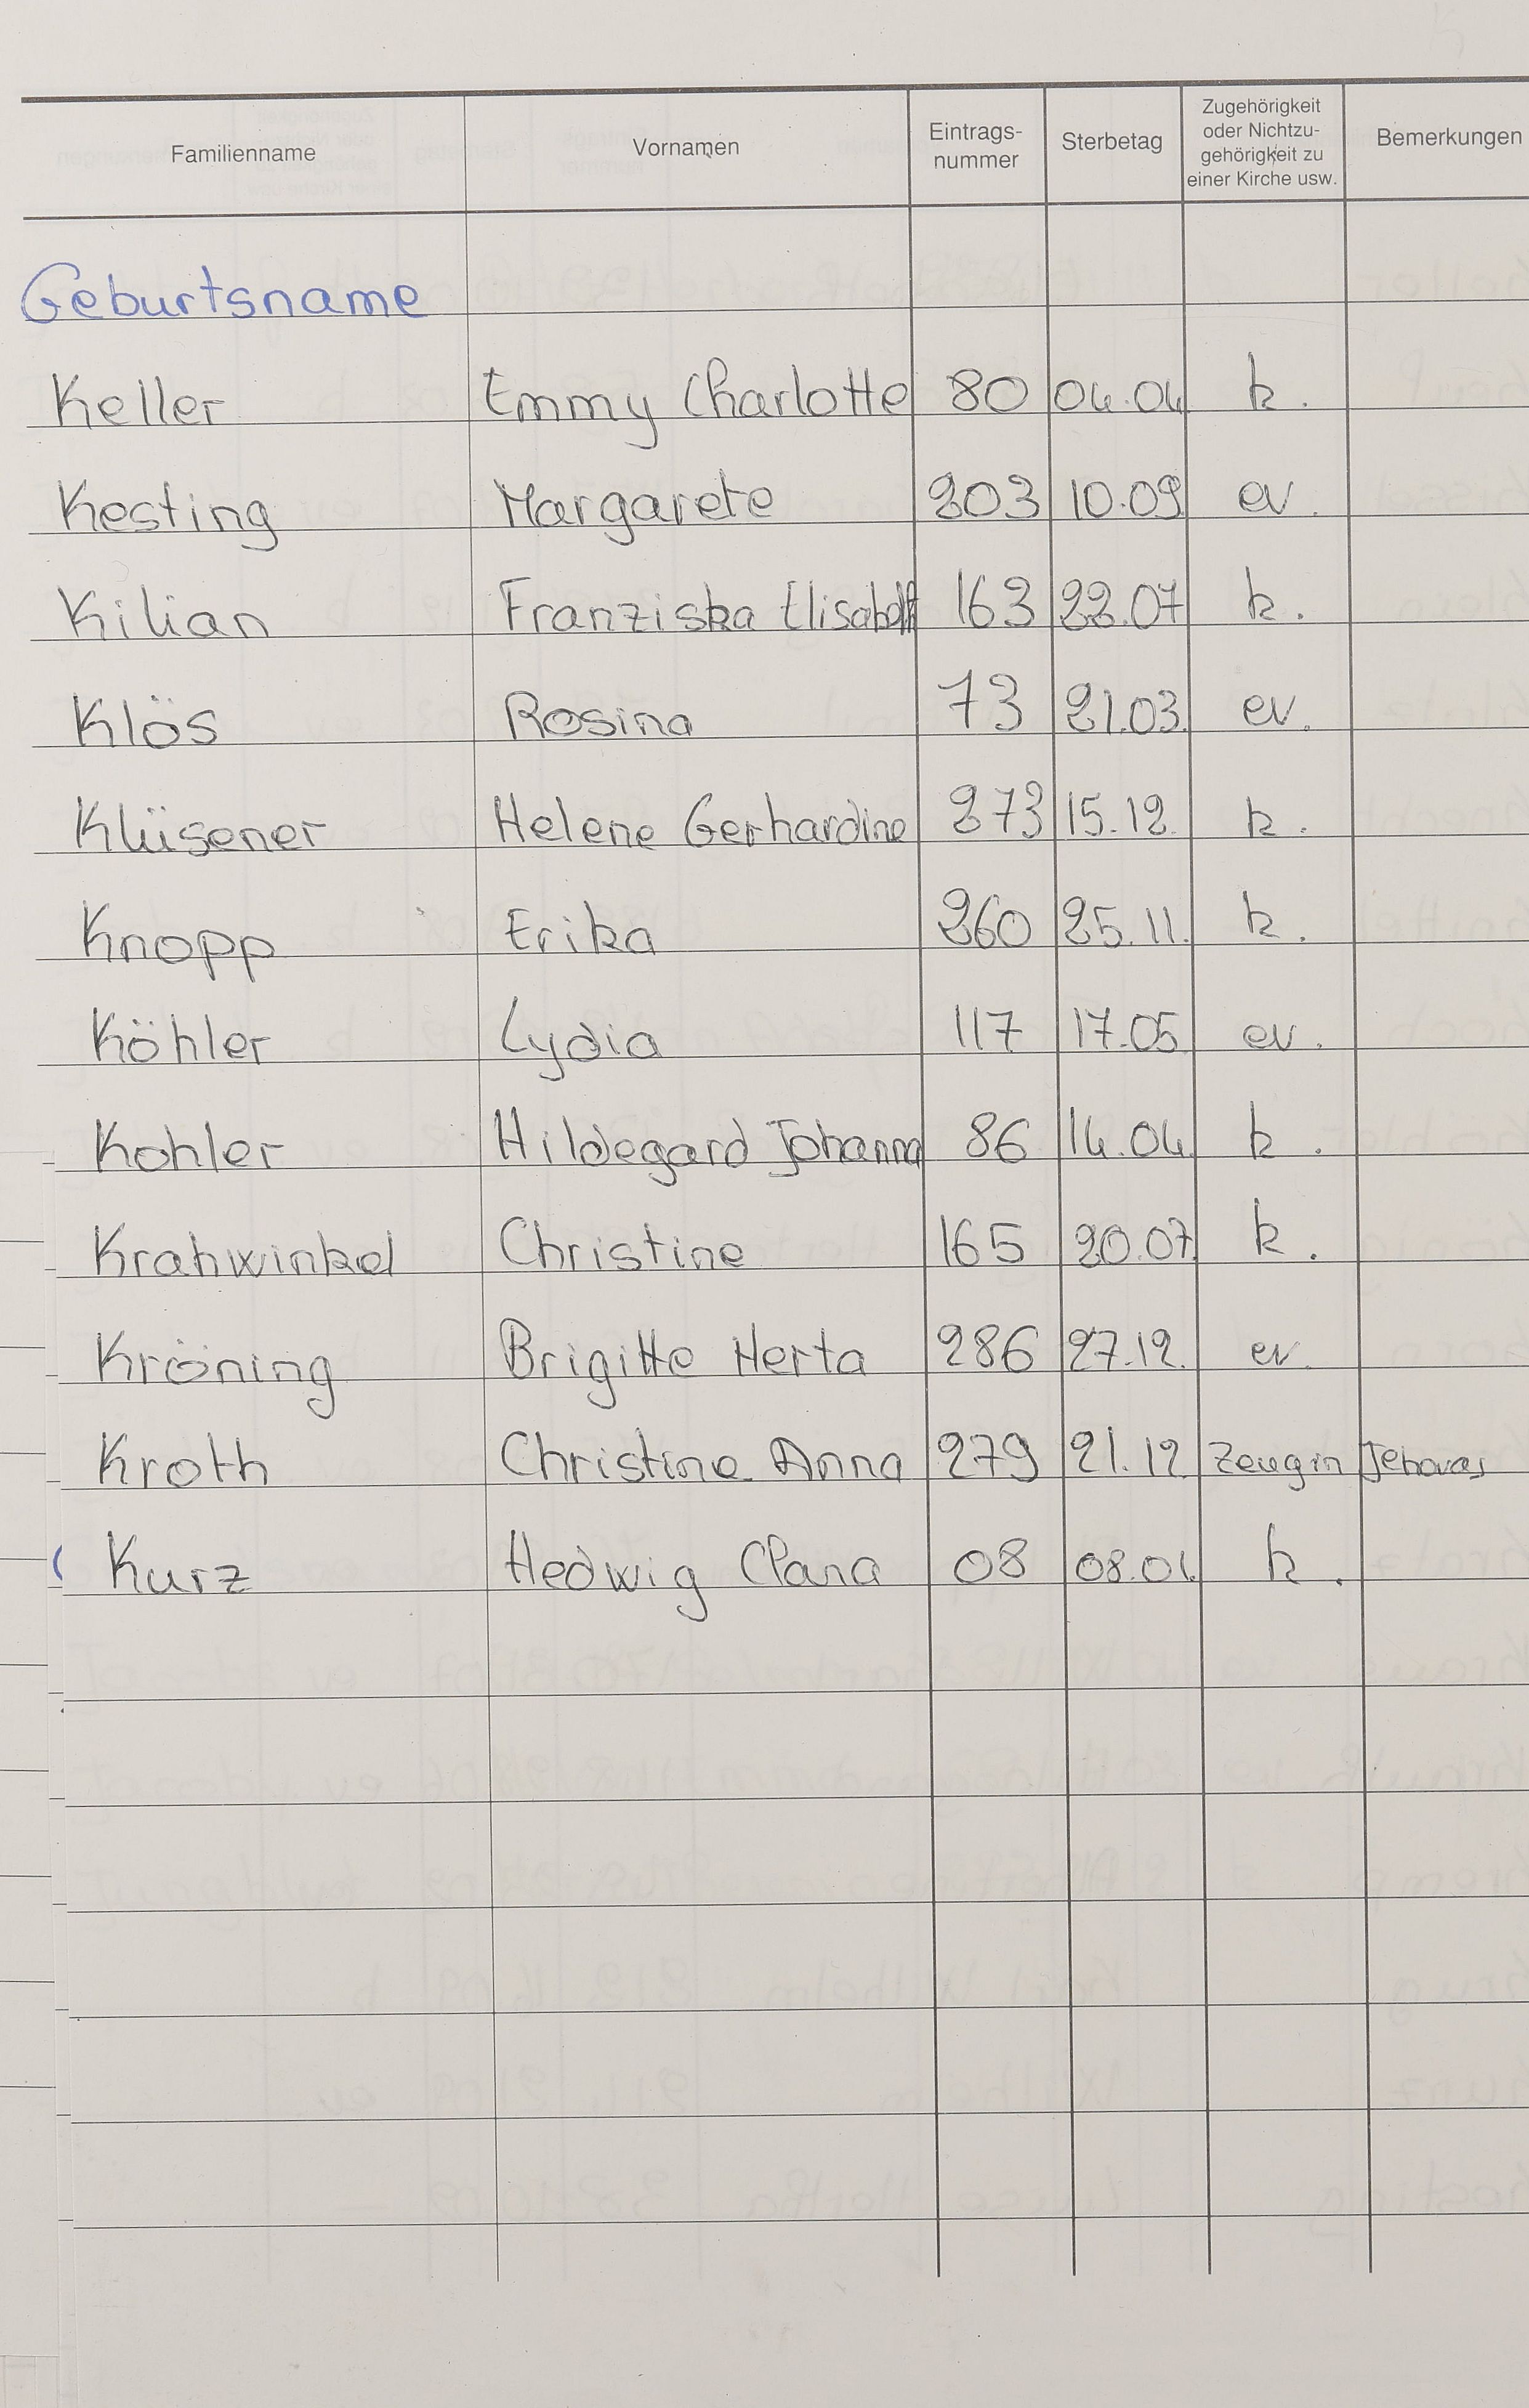 Familienname Vornamen Eintrags-nummer Sterbetag Zugehörigkeit oder Nichtzu-gehörigkeit zu einer Kirche usw. Bemerkungen
Geburtsname
Keller Emmy Charlotte 80 04.04 k.
Kesting Margarete 203 10.09 ev.
Kilian Franziska Elisabeth 163 22.07 k.
Klös Rosina 73 21.03. ev.
Klüsener Helene Gerhardine 273 15.12. k.
Knopp Erika 260 25.11. k.
Köhler Lydia 117 17.05 ev.
Kohler Hildegard Johanna 86 14.04. k.
Krahwinkel Christine 165 20.07. k.
Kröning Brigitte Herta 286 27.12. ev.
Kroth Christine Anna 279 21.12. Zeugin Jehovas
Kurz Hedwig Clara 08 08.01. k.